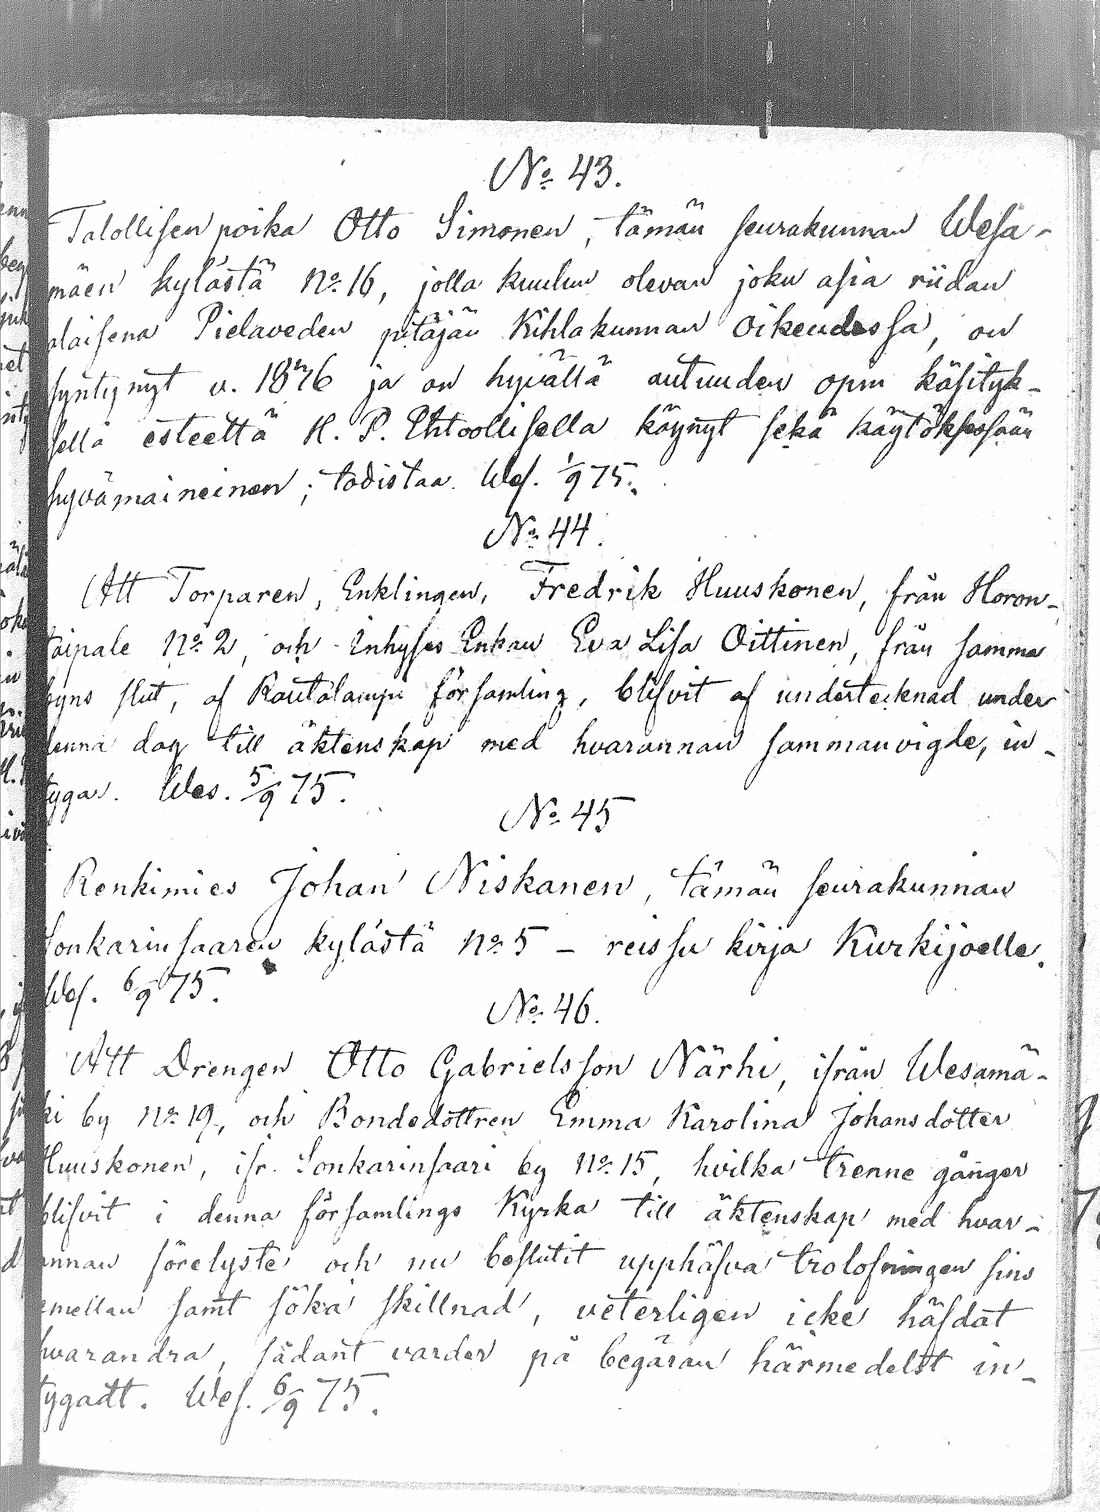 No 43.
Talollisen poika Otto Simonen, tämän seurakunnan Wesa-
mäen kylästä No 16, jolla kuuluu olevan joku asia riidan
alaisena Pielaveden pitäjän Kihlakunnan Oikeudessa, on
syntynyt v. 1846 ja on hyvällä autuuden opin käsityk-
sellä esteettä H. P. Ehtoollisella käynyt sekä käytöksessään
hyvämaineinen; todistaa. Wes. 1/9 75.
No 44.
Att Torparen, Enklingen, Fredrik Huuskonen, från Horon-
taipale No 2, och Inhyses Enkan Eva Lisa Oittinen, från samma
byns slut, af Rautalampi församling, blifvit af undertecknad under
denna dag till äktenskap med hvarannan sammanvigde, in-
tygar. Wes. 5/9 75.
No 45
Renkimies Johan Niskanen, tämän seurakunnan
Sonkarinsaaren kylästä No 5 – reissu kirja Kurkijoelle.
Wes. 6/9 75.
No 46.
Att Drengen Otto Gabrielsson Närhi, ifrån Wesamä-
ki by No 19, och Bondedottren Emma Karolina Johansdotter
Huuskonen, ifr. Sonkarinsaari by No 15, hvilka trenne gånger
blifvit i denna församlings Kyrka till äktenskap med hvar-
annan förelyste och nu beslutit upphäfva trolofningen sins
emellan samt söka skillnad, veterligen icke häfdat
hvarandra, sådant varder på begäran härmedelst in-
tygadt. Wes. 6/9 75.